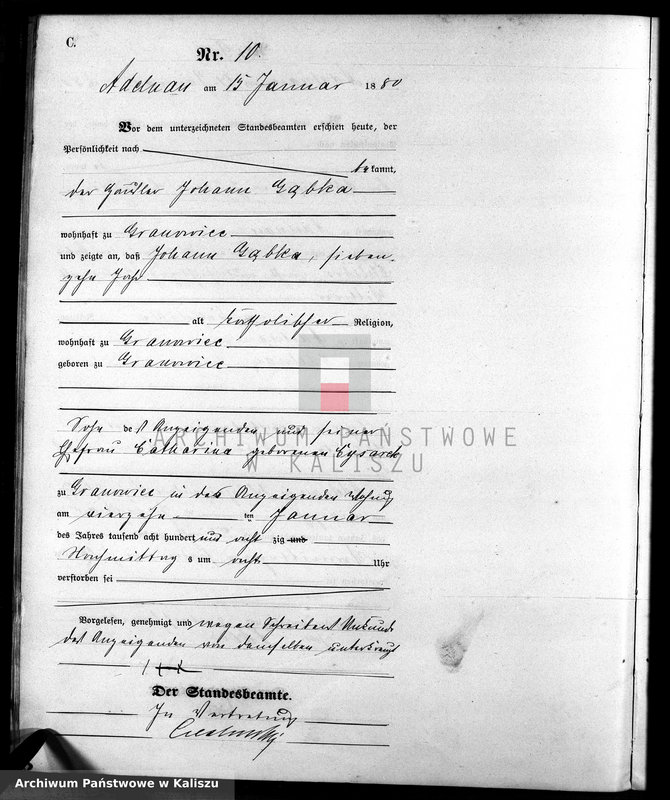 C.
Nr. 10.
Adelnau am 15 Januar 1880
Vor dem unterzeichneten Standesbeamten erschien heute, der
Persönlichkeit nach
bekannt,
der Häusler Johann Gąbka
wohnhaft zu Granowiec
und zeigte an, daß Johann Gąbka, sieben-
zehn Jahr
alt katholischer Religion,
wohnhaft zu Granowiec
geboren zu Granowiec
Sohn des Anzeigenden und seiner
Ehefrau Catharina geborenen
zu Granowiec in des Anzeigenden Wohnung
am vierzehn ten Januar
des Jahres tausend acht hundert und acht zig und
Nachmittag s um acht Uhr
verstorben sei
Vorgelesen, genehmigt und wegen Schreibens Unkunde
des Anzeigenden von demselben unterkreuzt
Der Standesbeamte.
In Vertretung
ARCHIWUM PAŃSTWOWE
W KALISZU
Archiwum Państwowe w Kaliszu